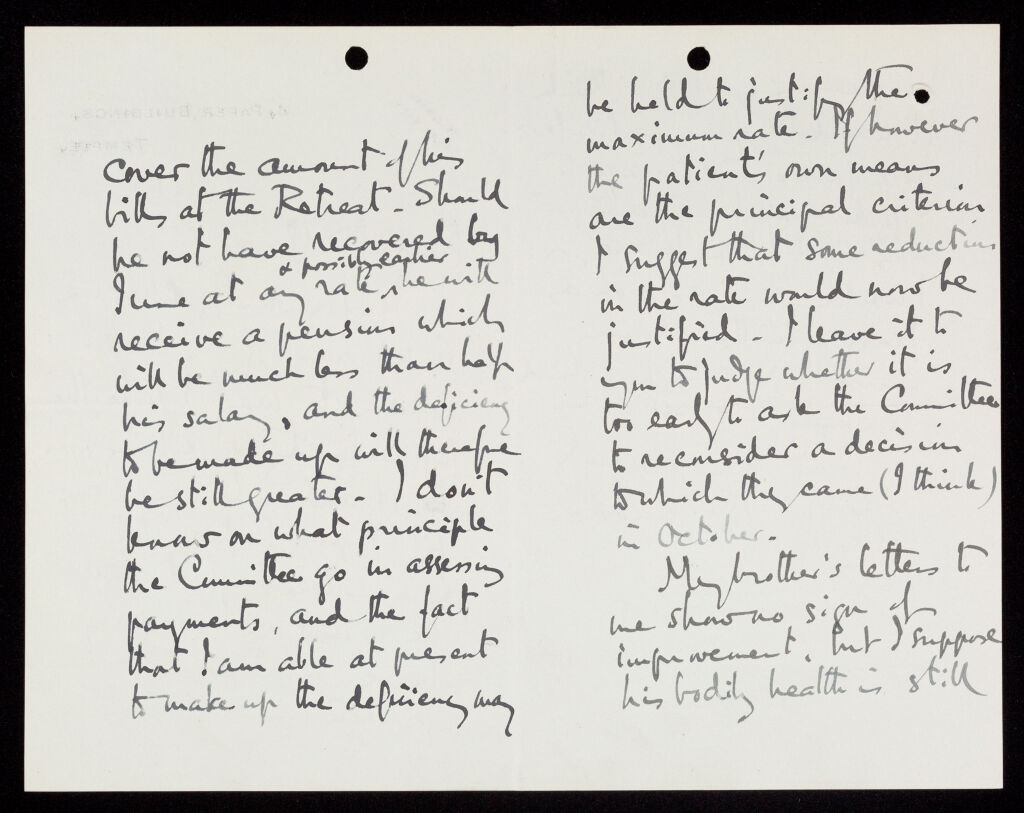 cover the amount of his
bills at the Retreat. Should
he not have recovered by
& possibly earlier
June at any rate, he will
receive a pension which
will be much less than half
his salary, and the deficiency
to be made up will therefore
be still greater. I don't
know on what principle
the Committee go in assessing
payments, and the fact
that I am able at present
to make up the deficiency may
be held to justify the
maximum rate. If however
the patient's own means
are the principal criterion
I suggest that some reduction
in the rate would now be
justified. I leave it to
you to judge whether it is
too early to ask the Committee
to reconsider a decision
to which they came (I think)
in October.
My brother's letters to
me show no sign of
improvement, but I suppose
his bodily health is still